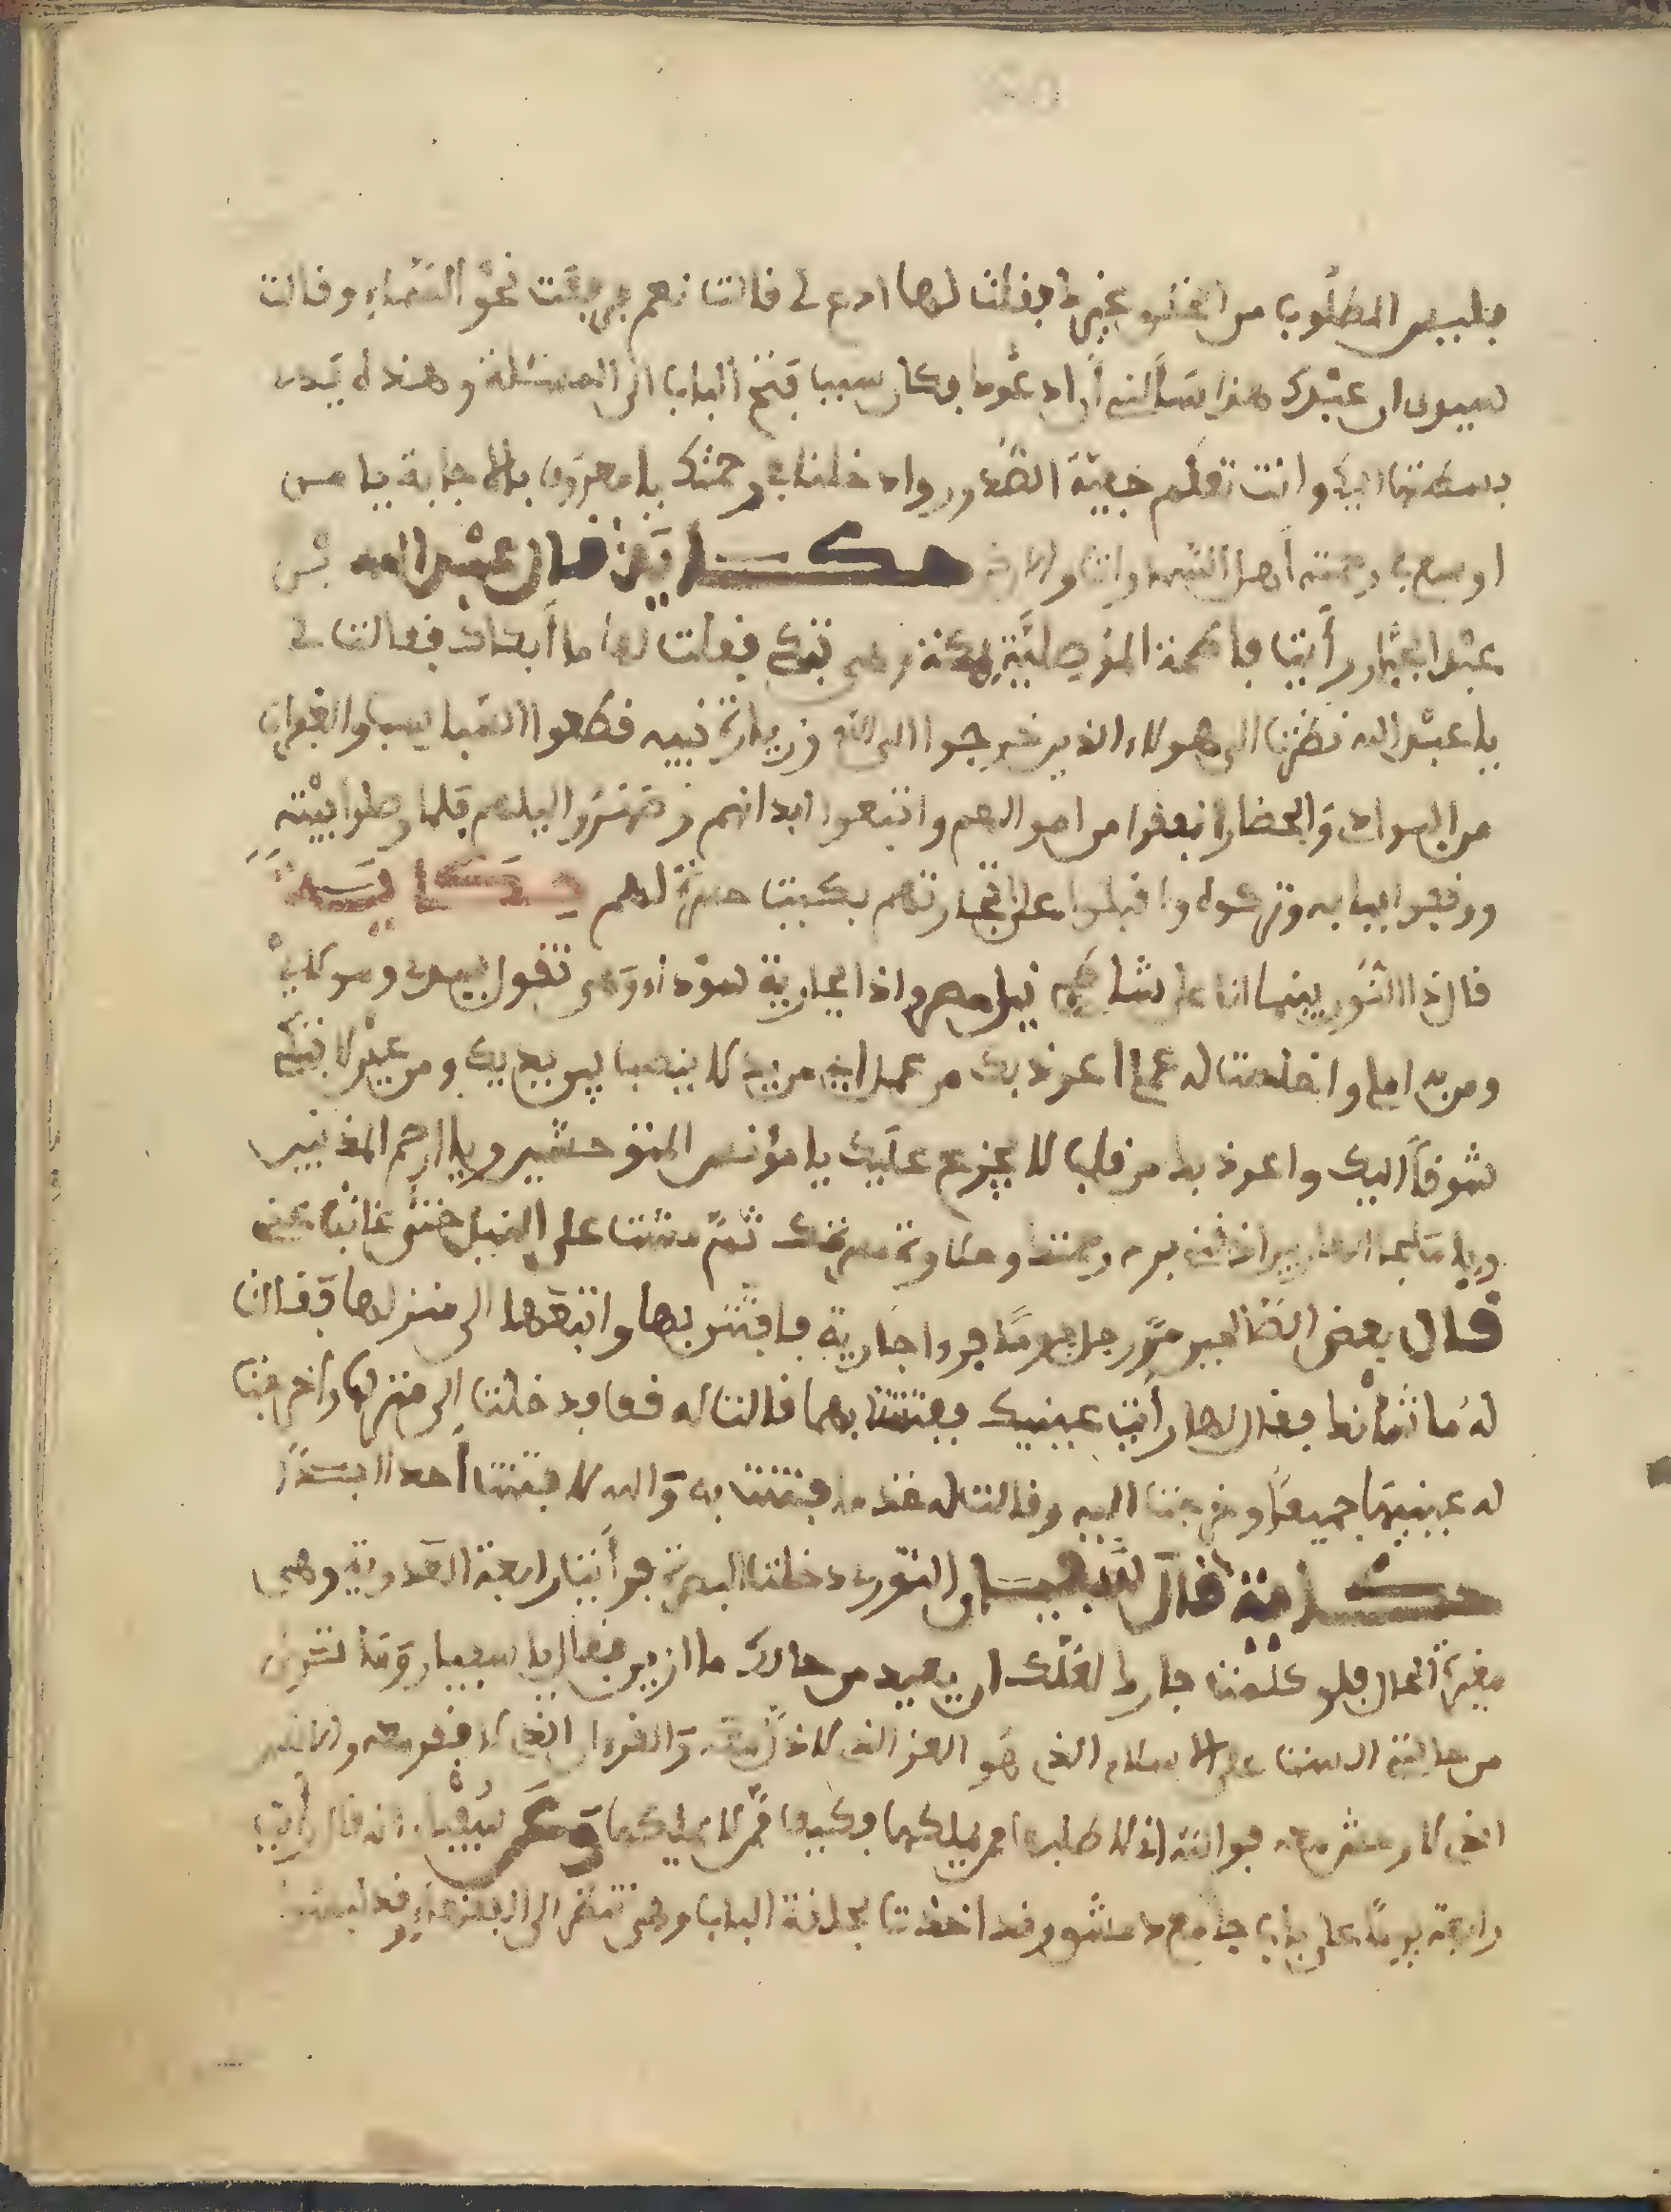 فليس المطلوب من الخلق غيره فقلت لها ادع لي فقالت نعم فرفعت نحو السماء وقالت
سيدي ان عبدك هذا يسألني أن ادعوك فكان سببا فتح الباب الى المسئلة وهذه يدي
بسطتها اليك وانت تعلم خفية الصدور وادخلنا في رحمتك يا معروف بالاجابة يا من
اوسع رحمته أهل السموات والارض حكاية قال عبد الله بن
عبد الجبار رأيت فاطمة الموصلية بمكة وهي تبكي فقلت لها ما أبكاك فقالت لي
يا عبد الله نظرت الى هولاء الذين خرجوا الى الله وزيارة نبيه فطعوا السباسب والفيافي
من البواد والحضار انفقوا من اموالهم واتبعوا ابدانهم وتصدروا اليهم فلما وصلوا بيته
ووقفوا ببابه وتركوه واقبلوا على تجارتهم بكيت حسرة لهم حكاية
قال ذا النون بينما انا على شاطئ نيل مصر واذا بجارية سوداء وهي تقول سيدي ومولاي
ومن به املي واخلصت له عملي اعوذ بك من بدن لا ينصب بين يديك ومن عين لا تبكي
شوقا اليك واعوذ بك من قلب لا يجزع عليك يا مؤنس المتوحشين ويا ارحم المذنبين
ويا اذقني برد رحمتك وحلاوة معرفتك ثم مشت على النيل حتى غابت عني
قال بعض الصالحين مر رجل يوما فرءا جارية فافتتن بها واتبعها الى منزلها فقالت
له ما شانك فقال لها رأيت عينيك ففتنت بهما فقالت له قف ودخلت الى منزلها واخرجت
له عينيها جميعا وخرجت اليه وقالت له خذ ما فتنت به والله لا فتنت أحدا ابدا
حكاية قال سفيان الثوري دخلت البصرة فرأيت رابعة العدوية وهي
مغيرة الحال فلو كلمت جارك لعلك ان يغير من حالك ما ازير فقال يا سفيان وما تنكرني
من حالتي الست على الاسلام الذي هو العز الذي لا ذل معه والغنى الذي لا فقر معه والانس
الذي لا وحش معه فوالله اني لا طلبها ممن يملكها وكيف ممن لا يملكها وحكى سفيان انه قال رأيت
رابعة يوما على باب جامع دمشق وقد اخذت بحلقة الباب وهي تنظر الى الفقراء وقد لبست